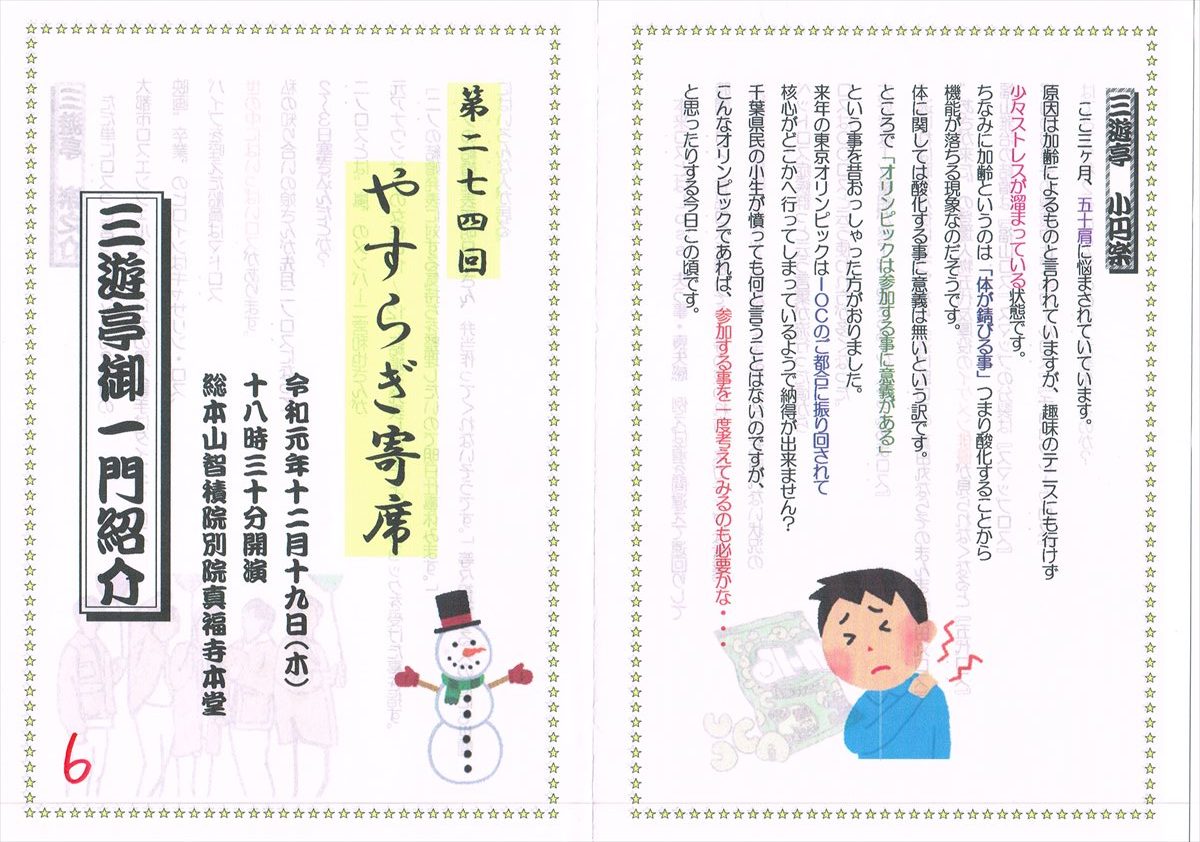 三遊亭 小円楽
ここ三ヶ月、五十肩に悩まされていています。
原因は加齢によるものと言われていますが、趣味のテニスにも行けず
少々ストレスが溜まっている状態です。
ちなみに加齢というのは「体が錆びる事」つまり酸化することから
機能が落ちる現象なのだそうです。
体に関しては酸化する事に意義は無いという訳です。
ところで「オリンピックは参加する事に意義がある」
という事を昔おっしゃった方がおりました。
来年の東京オリンピックはIOCのご都合に振り回されて
核心がどこかへ行ってしまっているようで納得が出来ません？
千葉県民の小生が憤っても何と言うことはないのですが、
こんなオリンピックであれば、参加する事を一度考えてみるのも必要かな・・・
と思ったりする今日この頃です。
第二七四回
やすらぎ寄席
令和元年十二月十九日（木）
十八時三十分開演
総本山智積院別院真福寺本堂
三遊亭御一門紹介
6